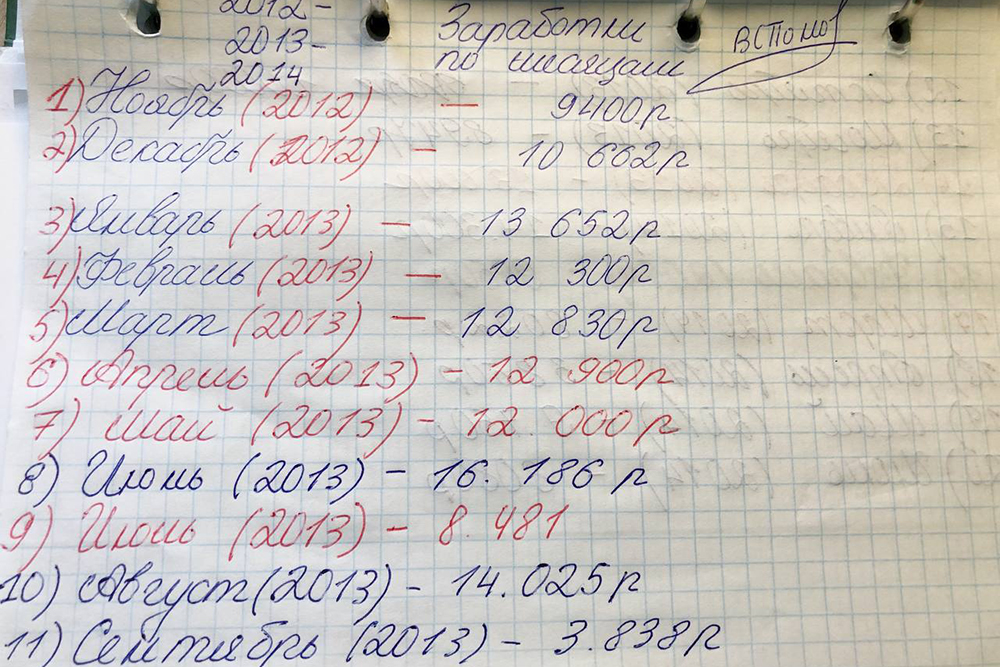 2012-
2013-
2014
Заработки
по месяцам
ВСПОМОГ
1) Ноябрь (2012) — 9400р
2) Декабрь (2012) — 10 662р
3) Январь (2013) — 13 652р
4) Февраль (2013) — 12 300р
5) Март (2013) — 12 830р
6) Апрель (2013) - 12 900р
7) Май (2013) - 12.000р
8) Июнь (2013) - 16.186р
9) Июль (2013) - 8.481
10) Август (2013) - 14.025р
11) Сентябрь (2013) - 3.838р